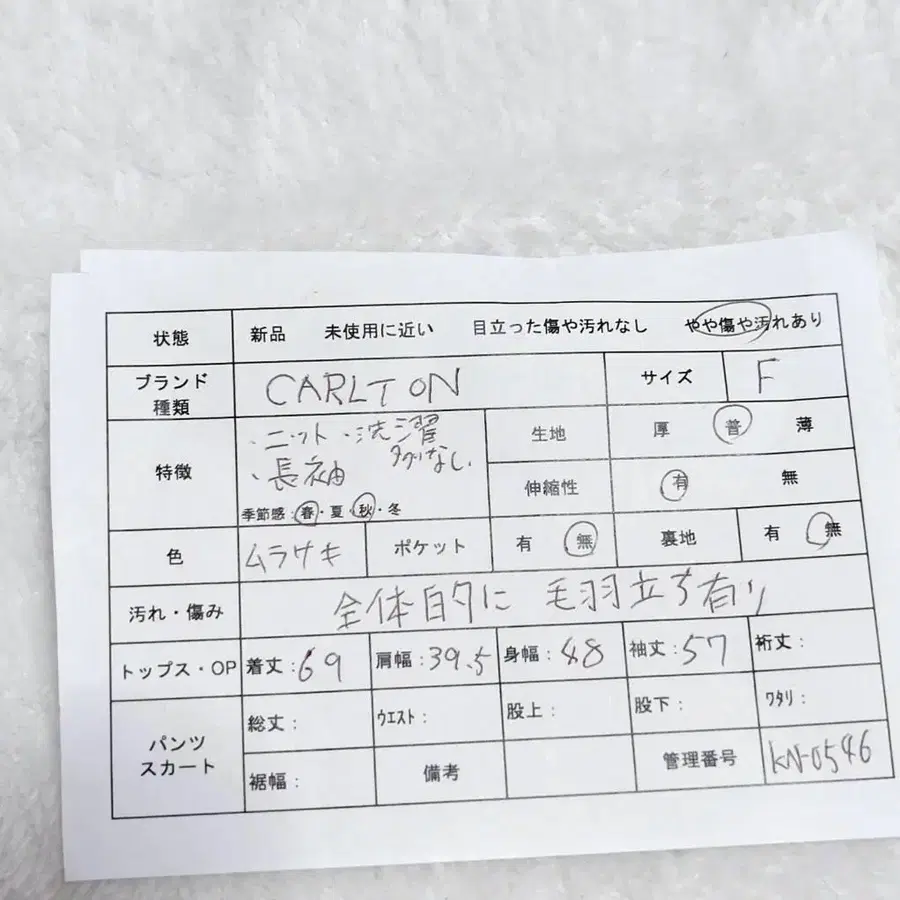 状態 新品 未使用に近い 目立った傷や汚れなし やや傷や汚れあり
ブランド 種類 CARLTON サイズ F
特徴 ・ニット ・洗濯タグなし.
・長袖
季節感：春・夏・秋・冬
生地 厚 普 薄
伸縮性 有 無
色 ムラサキ ポケット 有 無 裏地 有 無
汚れ・傷み 全体的に 毛羽立ち有り
トップス・OP 着丈：69 肩幅：39.5 身幅：48 袖丈：57 裄丈：
パンツ スカート 総丈： ウエスト： 股上： 股下： ワタリ：
裾幅： 備考 管理番号 KN-0546